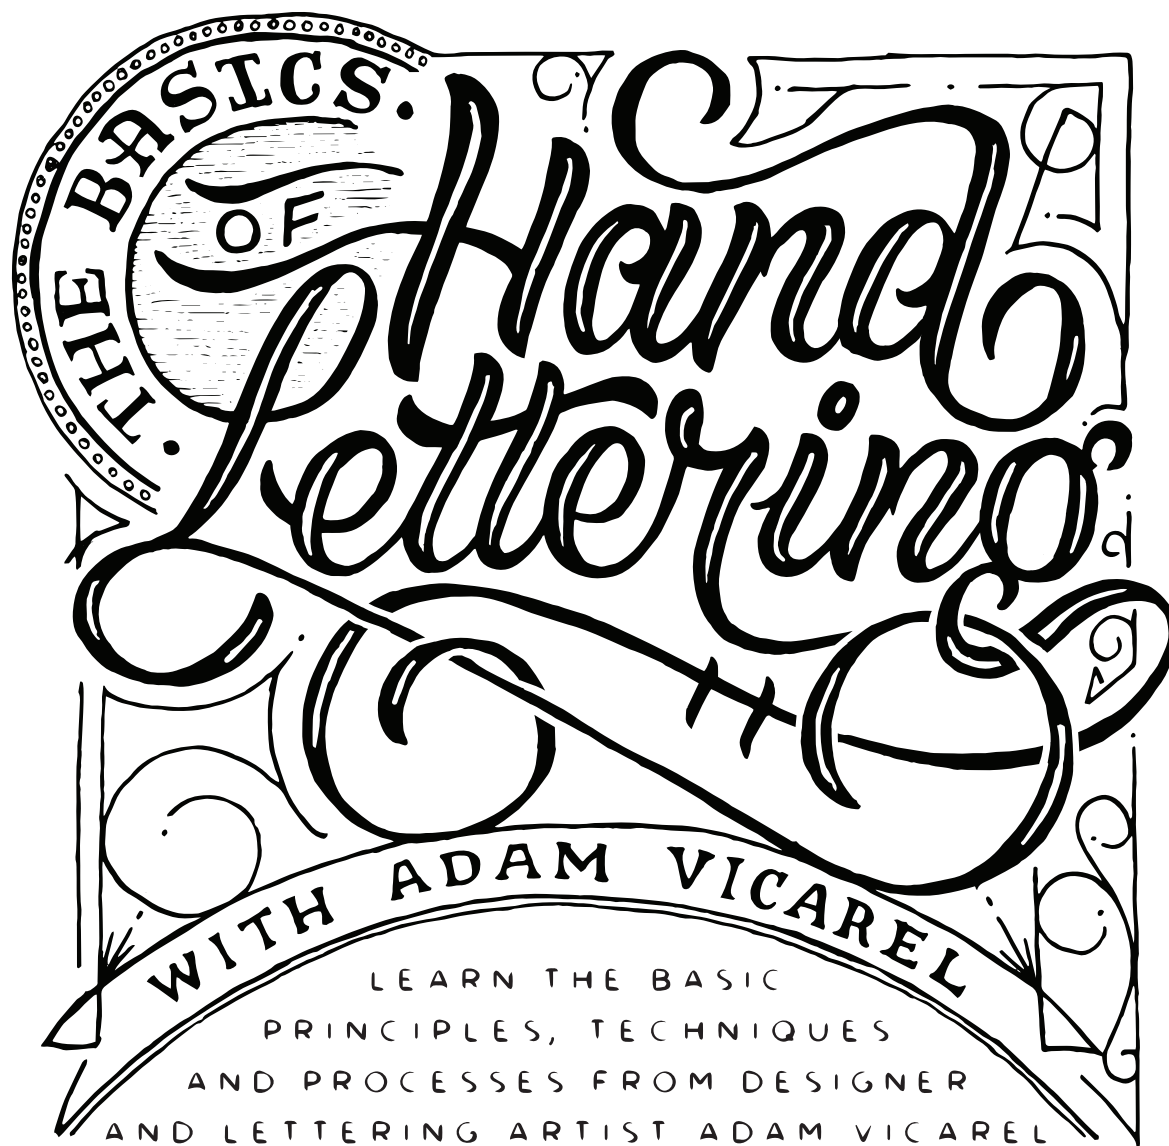 · THE BASICS ·
OF
Hand
Lettering
WITH ADAM VICAREL
LEARN THE BASIC
PRINCIPLES, TECHNIQUES
AND PROCESSES FROM DESIGNER
AND LETTERING ARTIST ADAM VICAREL